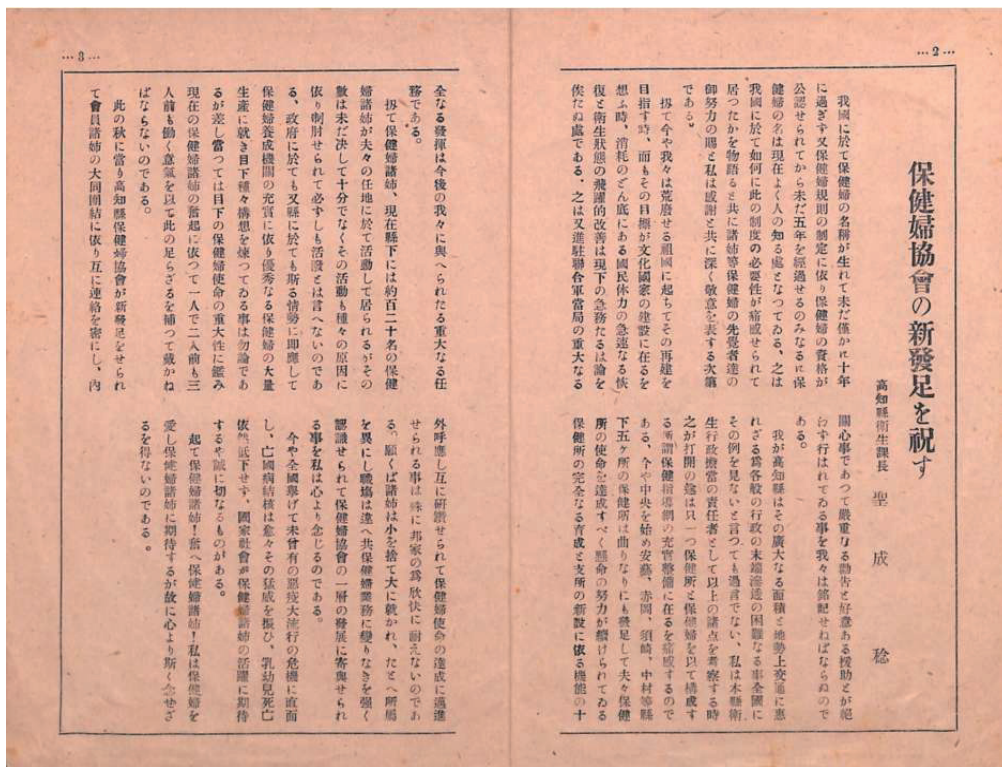 …2…
保健婦協會の新發足を祝す
高知縣衛生課長 聖成稔
我國に於て保健婦の名稱が生れて未だ僅かに十年
に過ぎず又保健婦規則の制定に依り保健婦の資格が
公認せられてから未だ五年を經過せるのみなるに保
健婦の名は現在よく人の知る處となつてゐる、之は
我國に於て如何に此の制度の必要性が痛感せられて
居つたかを物語ると共に諸姉等保健婦の先覺者達の
御努力の賜と私は感謝と共に深く敬意を表する次第
である。
扨て今や我々は荒廢せる祖國に起ちてその再建を
目指す時、而もその目標が文化國家の建設に在るを
想ふ時、消耗のどん底にある國民体力の急速なる恢
復と衛生狀態の飛躍的改善は現下の急務たるは論を
俟たぬ處である、之は又進駐聯合軍當局の重大なる
關心事であつて嚴重なる勸告と好意ある援助とが絶
わず行はれてゐる事を我々は銘記せねばならぬので
ある。
我が高知縣はその廣大なる面積と地勢上交通に惠
れざる爲各般の行政の末端滲透の困難なる事全國に
その例を見ないと言つても過言でない、私は本縣衛
生行政擔當の責任者として以上の諸点を考察する時
之が打開の途は只一つ保健所と保健婦を以て構成す
る所謂保健指導網の充實整備に在るを痛感するので
ある、今や中央を始め安藝、赤岡、須崎、中村等縣
下五ヶ所の保健所は曲りなりにも發足して夫々保健
所の使命を達成すべく懸命の努力が續けられてゐる
保健所の完全なる育成と支所の新設に依る機能の十
…3…
全なる發揮は今後の我々に與へられたる重大なる任
務である。
扨て保健婦諸姉、現在縣下には約百二十名の保健
婦諸姉が夫々の任地に於て活動して居られるがその
數は未だ決して十分でなくその活動も種々の原因に
依り制肘せられて必ずしも活潑とは言へないのであ
る、政府に於ても又縣に於ても斯る情勢に即應して
保健婦養成機關の充實に依り優秀なる保健婦の大量
生產に就き目下種々構想を煉つてゐる事は勿論であ
るが差し當つては目下の保健婦使命の重大性に鑑み
現在の保健婦諸姉の奮起に依つて一人で二人前も三
人前も働く意氣を以て此の足らざるを補つて戴かね
ばならないのである。
此の秋に當り高知縣保健婦協會が新發足をせられ
て會員諸姉の大同團結に依り互に連絡を密にし、內
外呼應し互に硏鑽せられて保健婦使命の達成に邁進
せられる事は殊に邦家の爲欣快に耐えないのであ
る。願くば諸姉は小を捨て大に就かれ、たとへ所屬
を異にし職場は違へ共保健婦業務に變りなきを强く
認識せられて保健婦協會の一層の發展に寄與せられ
る事を私は心より念じるのである。
今や全國擧げて未曾有の惡疫大流行の危機に直面
し、亡國病結核は愈々その猛威を振ひ、乳幼兒死亡
依然低下せず、國家社會が保健婦諸姉の活躍に期待
するや誠に切なるものがある。
起て保健婦諸姉!奮へ保健婦諸姉!私は保健婦を
愛し保健婦諸姉に期待するが故に心より斯く念ぜざ
るを得ないのである。